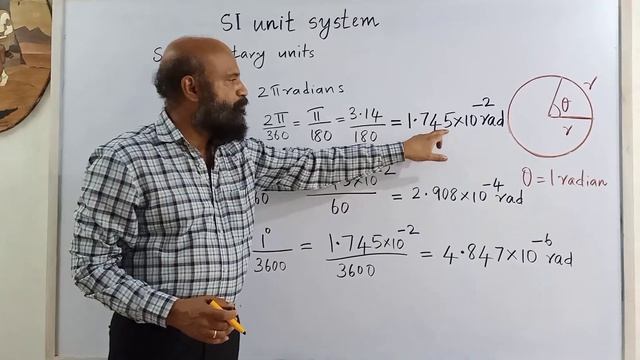 SI unit system
tary units
2π radians
2π/360 = π/180 = 3.14/180 = 1.745×10⁻² rad
60 60 = 2.908×10⁻⁴ rad
1°/3600 = 1.745×10⁻²/3600 = 4.847×10⁻⁶ rad
r
θ
r
θ = 1 radian